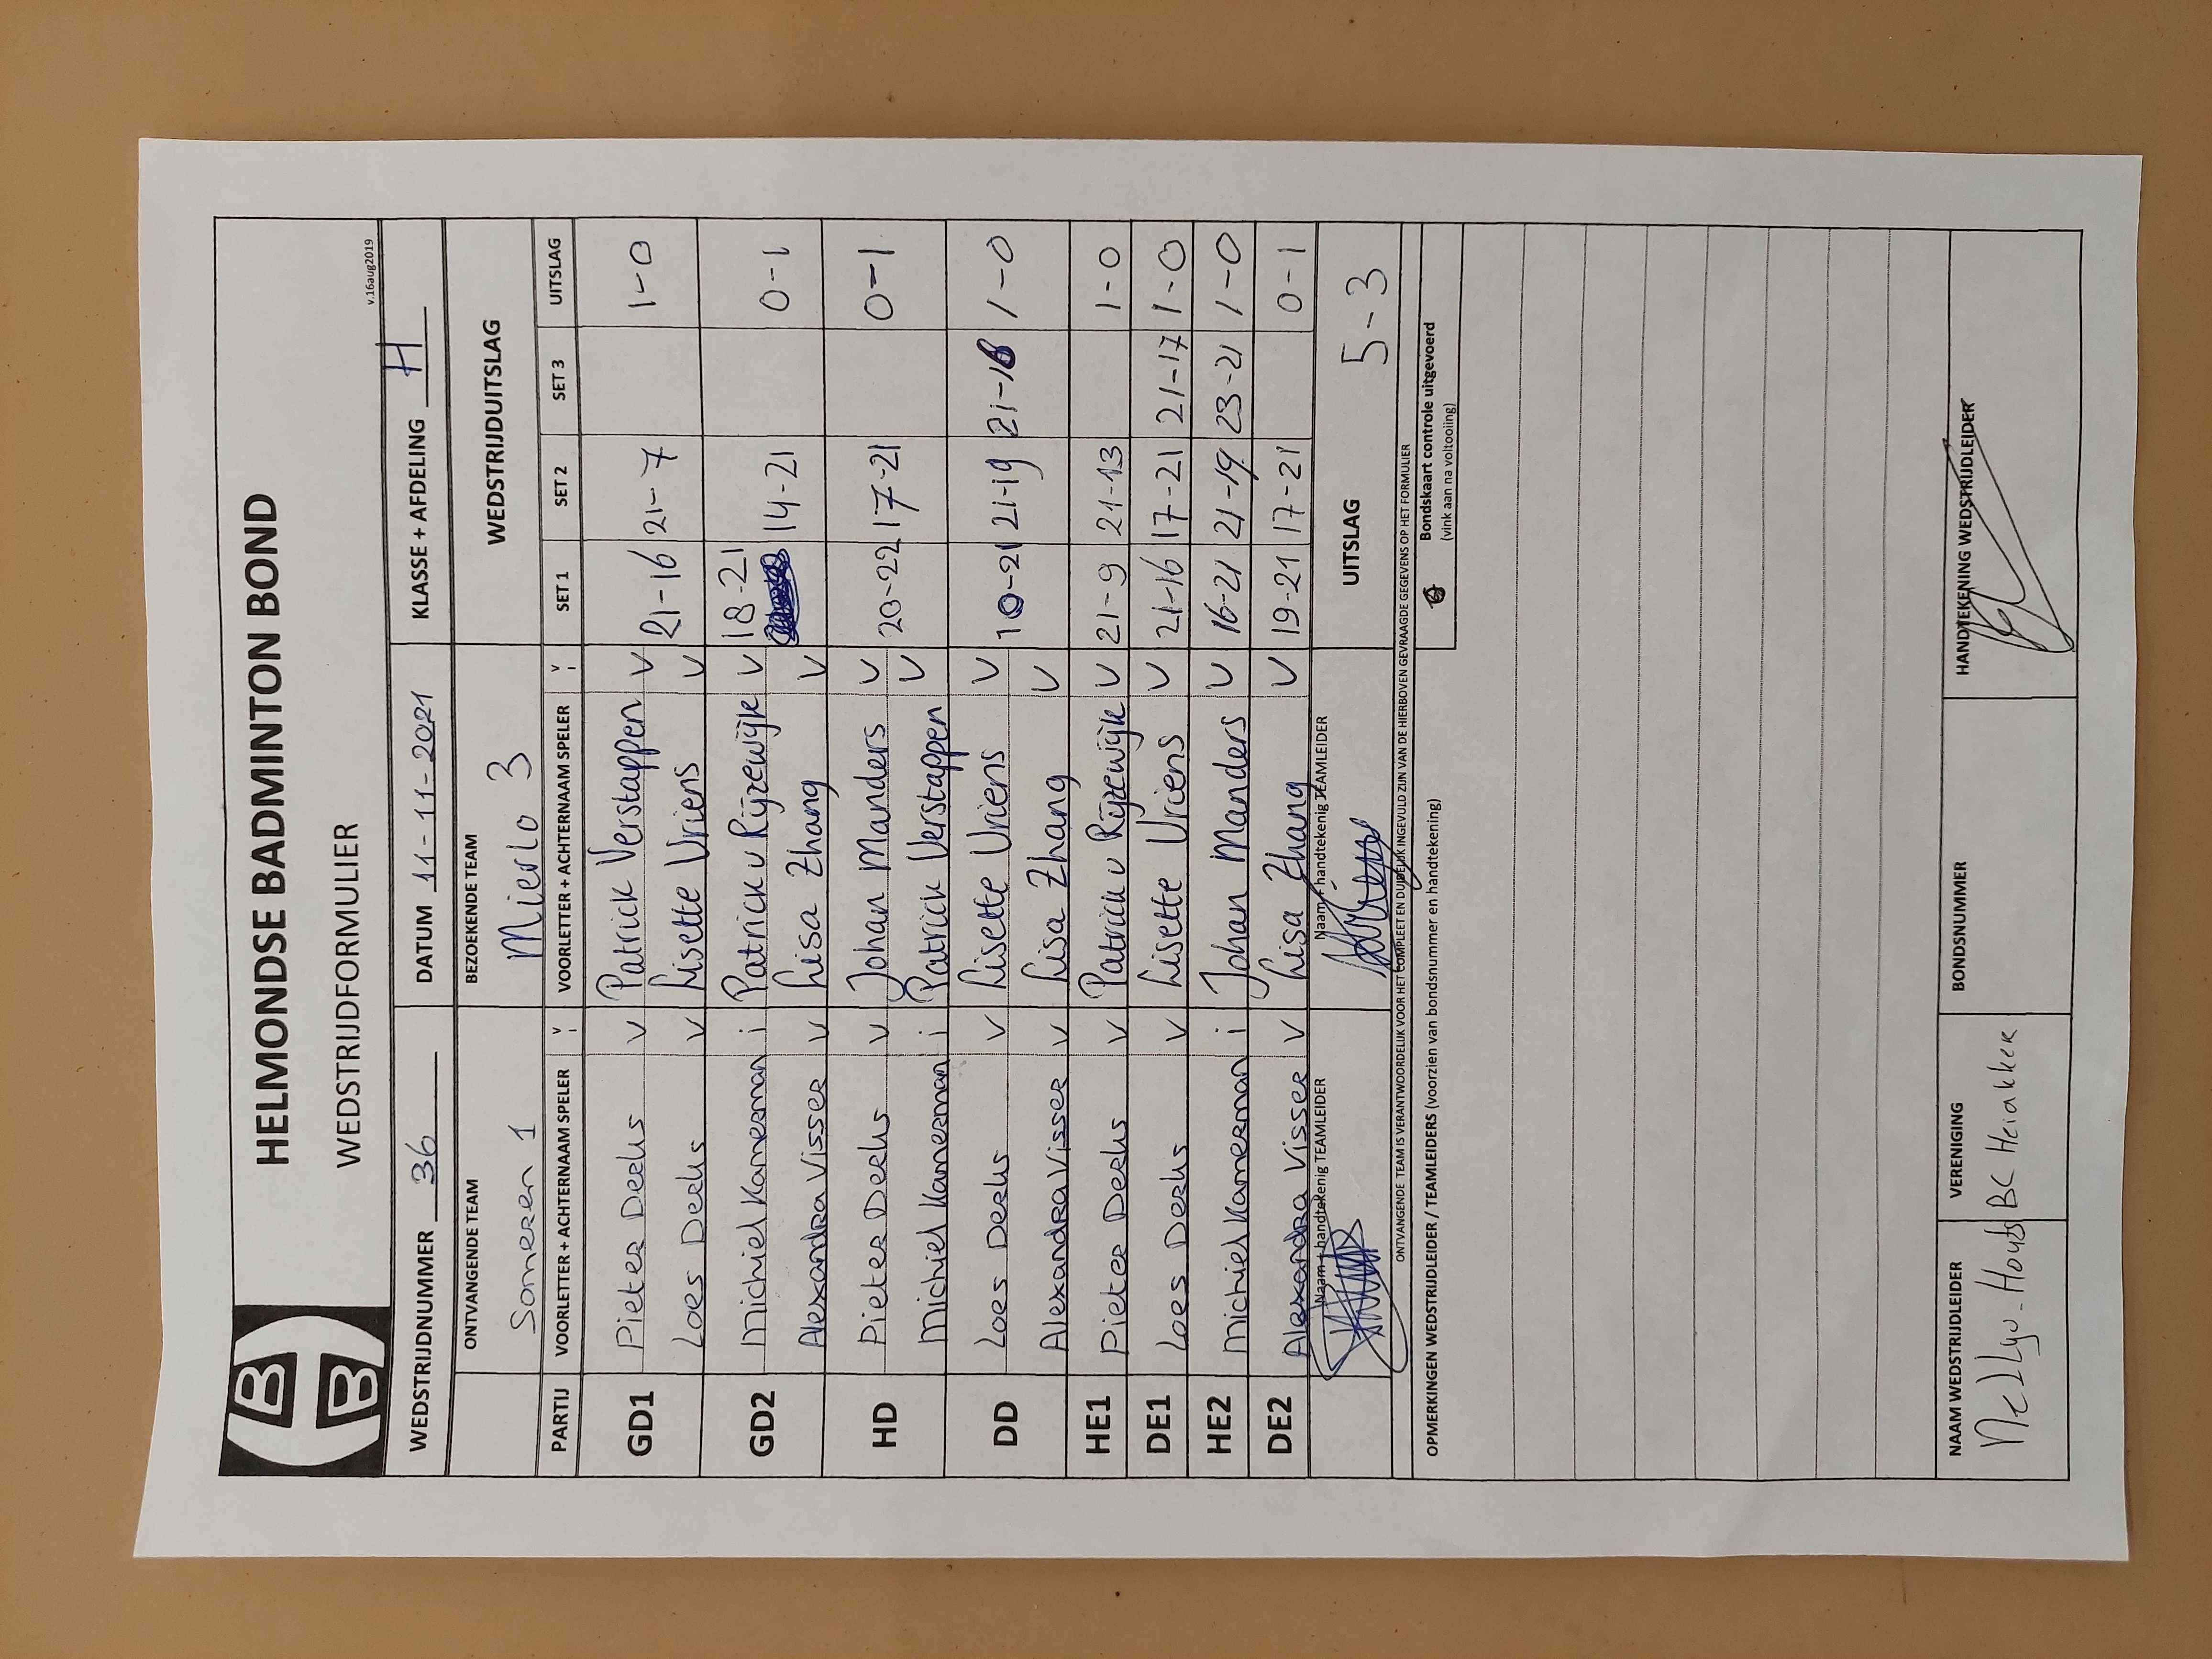 HELMONDSE BADMINTON BOND
WEDSTRIJDFORMULIER
v.16aug2019
WEDSTRIJDNUMMER 36 DATUM 11-11-2021 KLASSE + AFDELING H
ONTVANGENDE TEAM BEZOEKENDE TEAM WEDSTRIJDUITSLAG
Someren 1 Mierlo 3
PARTIJ VOORLETTER + ACHTERNAAM SPELER V i VOORLETTER + ACHTERNAAM SPELER V i SET 1 SET 2 SET 3 UITSLAG
GD1 Pieter Derks V Patrick Verstappen V 21-16 21-7 1-0
Loes Derks V Lisette Vriens V
GD2 Michiel Kamerman i Patrick v Rijzewijk V 18-21 14-21 0-1
Alexandra Visser V Lisa Zhang V
HD Pieter Derks V Johan Manders V 20-22 17-21 0-1
Michiel Kamerman i Patrick Verstappen V
DD Loes Derks V Lisette Vriens V 10-21 21-19 21-16 1-0
Alexandra Visser V Lisa Zhang V
HE1 Pieter Derks V Patrick v Rijzewijk V 21-9 21-13 1-0
DE1 Loes Derks V Lisette Vriens V 21-16 17-21 21-17 1-0
HE2 Michiel Kamerman i Johan Manders V 16-21 21-19 23-21 1-0
DE2 Alexandra Visser V Lisa Zhang V 19-21 17-21 0-1
Naam + handtekenig TEAMLEIDER Naam + handtekenig TEAMLEIDER UITSLAG 5-3
ONTVANGENDE TEAM IS VERANTWOORDELIJK VOOR HET COMPLEET EN DUIDELIJK INGEVULD ZIJN VAN DE HIERBOVEN GEVRAAGDE GEGEVENS OP HET FORMULIER
OPMERKINGEN WEDSTRIJDLEIDER / TEAMLEIDERS (voorzien van bondsnummer en handtekening)
Bondskaart controle uitgevoerd
(vink aan na voltooiing)
NAAM WEDSTRIJDLEIDER VERENIGING BONDSNUMMER HANDTEKENING WEDSTRIJDLEIDER
BC Heiakker